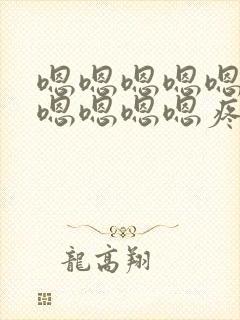 嗯嗯嗯嗯嗯
嗯嗯嗯嗯疼
龍高翔